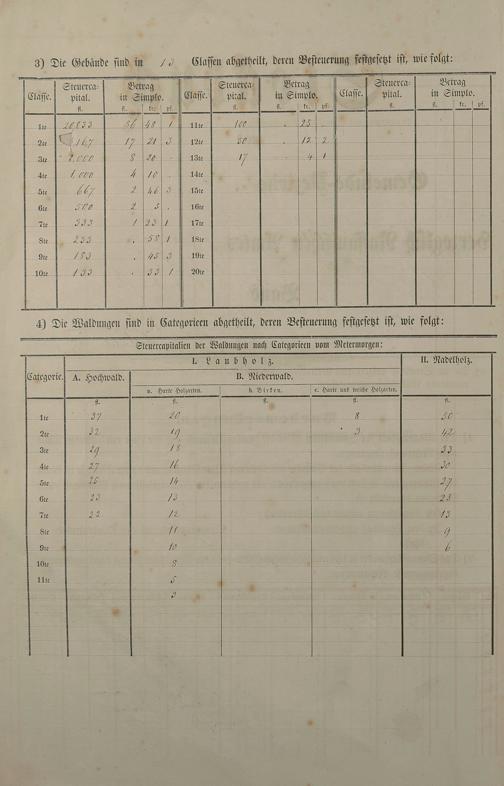 3) Die Gebäude sind in 13 Classen abgetheilt, deren Besteuerung festgesetzt ist, wie folgt:
Classe. Steuercapital. Betrag in Simplo. Classe. Steuercapital. Betrag in Simplo. Classe. Steuercapital. Betrag in Simplo.
fl. fl. kr. pf. fl. fl. kr. pf. fl. fl. kr. pf.
1te 56 48 1 11te 100 . 25
2te 167 17 21 3 12te 50 . 12 2
3te 2,000 8 20 . 13te 17 . 4 1
4te 1,000 4 10 . 14te
5te 667 2 46 3 15te
6te 500 2 5 . 16te
7te 333 1 23 1 17te
8te 233 . 58 1 18te
9te 183 . 45 3 19te
10te 133 . 33 1 20te
4) Die Waldungen sind in Categorieen abgetheilt, deren Besteuerung festgesetzt ist, wie folgt:
Steuercapitalien der Waldungen nach Categorieen vom Metermorgen:
I. Laubholz. II. Nadelholz.
Categorie. A. Hochwald. B. Niederwald.
a. Harte Holzarten. b. Birken. c. Harte und weiche Holzarten.
fl. fl. fl. fl. fl.
1te 37 20 8 50
2te 32 19 3 42
3te 29 18 33
4te 27 16 30
5te 25 14 27
6te 23 13 23
7te 22 12 13
8te 11 9
9te 10 6
10te 8
11te 5
3